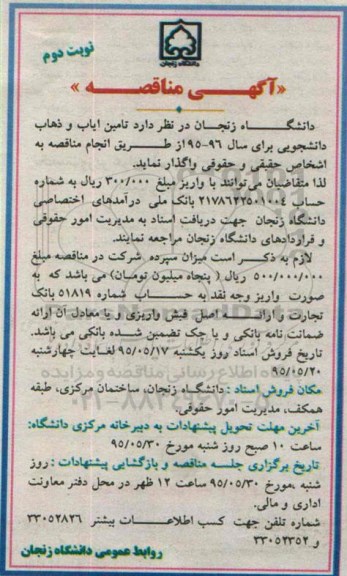 نوبت دوم
دانشگاه زنجان
«آگهی مناقصه»
دانشگاه زنجان در نظر دارد تامین ایاب و ذهاب
دانشجویی برای سال ۹۶-۹۵ از طریق انجام مناقصه به
اشخاص حقیقی و حقوقی واگذار نماید.
لذا متقاضیان می‌توانند با واریز مبلغ ۳۰۰/۰۰۰ ریال به شماره
حساب ۲۱۷۸۶۲۲۵۰۱۰۰۴ بانک ملی درآمدهای اختصاصی
دانشگاه زنجان جهت دریافت اسناد به مدیریت امور حقوقی
و قراردادهای دانشگاه زنجان مراجعه نمایند.
لازم به ذکر است میزان سپرده شرکت در مناقصه مبلغ
۵۰۰/۰۰۰/۰۰۰ ریال ( پنجاه میلیون تومان) می باشد که به
صورت واریز وجه نقد به حساب شماره ۵۱۸۱۹ بانک
تجارت و ارائه اصل فیش واریزی و یا معادل آن ارائه
ضمانت نامه بانکی و یا چک تضمین شده بانکی می باشد.
تاریخ فروش اسناد روز یکشنبه ۹۵/۰۵/۱۷ لغایت چهارشنبه
۹۵/۰۵/۲۰
مکان فروش اسناد : دانشگاه زنجان، ساختمان مرکزی، طبقه
همکف، مدیریت امور حقوقی.
آخرین مهلت تحویل پیشنهادات به دبیرخانه مرکزی دانشگاه:
ساعت ۱۰ صبح روز شنبه مورخ ۹۵/۰۵/۳۰
تاریخ برگزاری جلسه مناقصه و بازگشایی پیشنهادات : روز
شنبه ،مورخ ۹۵/۰۵/۳۰ ساعت ۱۲ ظهر در محل دفتر معاونت
اداری و مالی.
شماره تلفن جهت کسب اطلاعات بیشتر ۳۳۰۵۲۸۲۶
و ۳۳۰۵۲۳۵۲
روابط عمومی دانشگاه زنجان